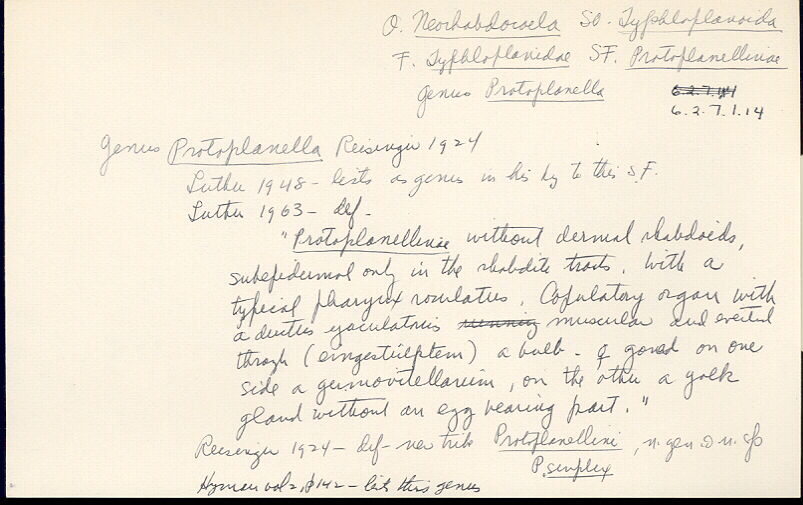 O. Neorhabdocoela SO. Typhloplanoida
F. Typhloplanidae SF. Protoplanellinae
genus Protoplanella 6.2.7.1.14
Genus Protoplanella Reisinger 1924
Luther 1948 - lists as genus in his key to this S.F.
Luther 1963 - def.
"Protoplanellinae without dermal rhabdoids,
subepidermal only in the rhabdite tracts. With a
typical pharynx rosulatus. Copulatory organ with
a ductus ejaculatorius running muscular and everted
through (eingestülptem) a bulb. ♀ gonad on one
side a germovitellarium, on the other a yolk
gland without an egg bearing part."
Reisinger 1924 - def - new tribe Protoplanellini, n. gen & n. sp
P. simplex
Hyman vol 2, p 142 - lists this genus